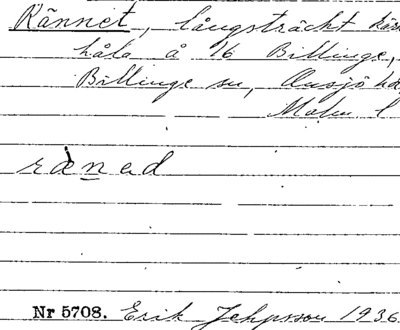 Rännet, långsträckt kärr
håla å 16 Billinge,
Billinge sn, Onsjö hd
Malm l
rænəd
Nr 5708. Erik Jeppsson 1936